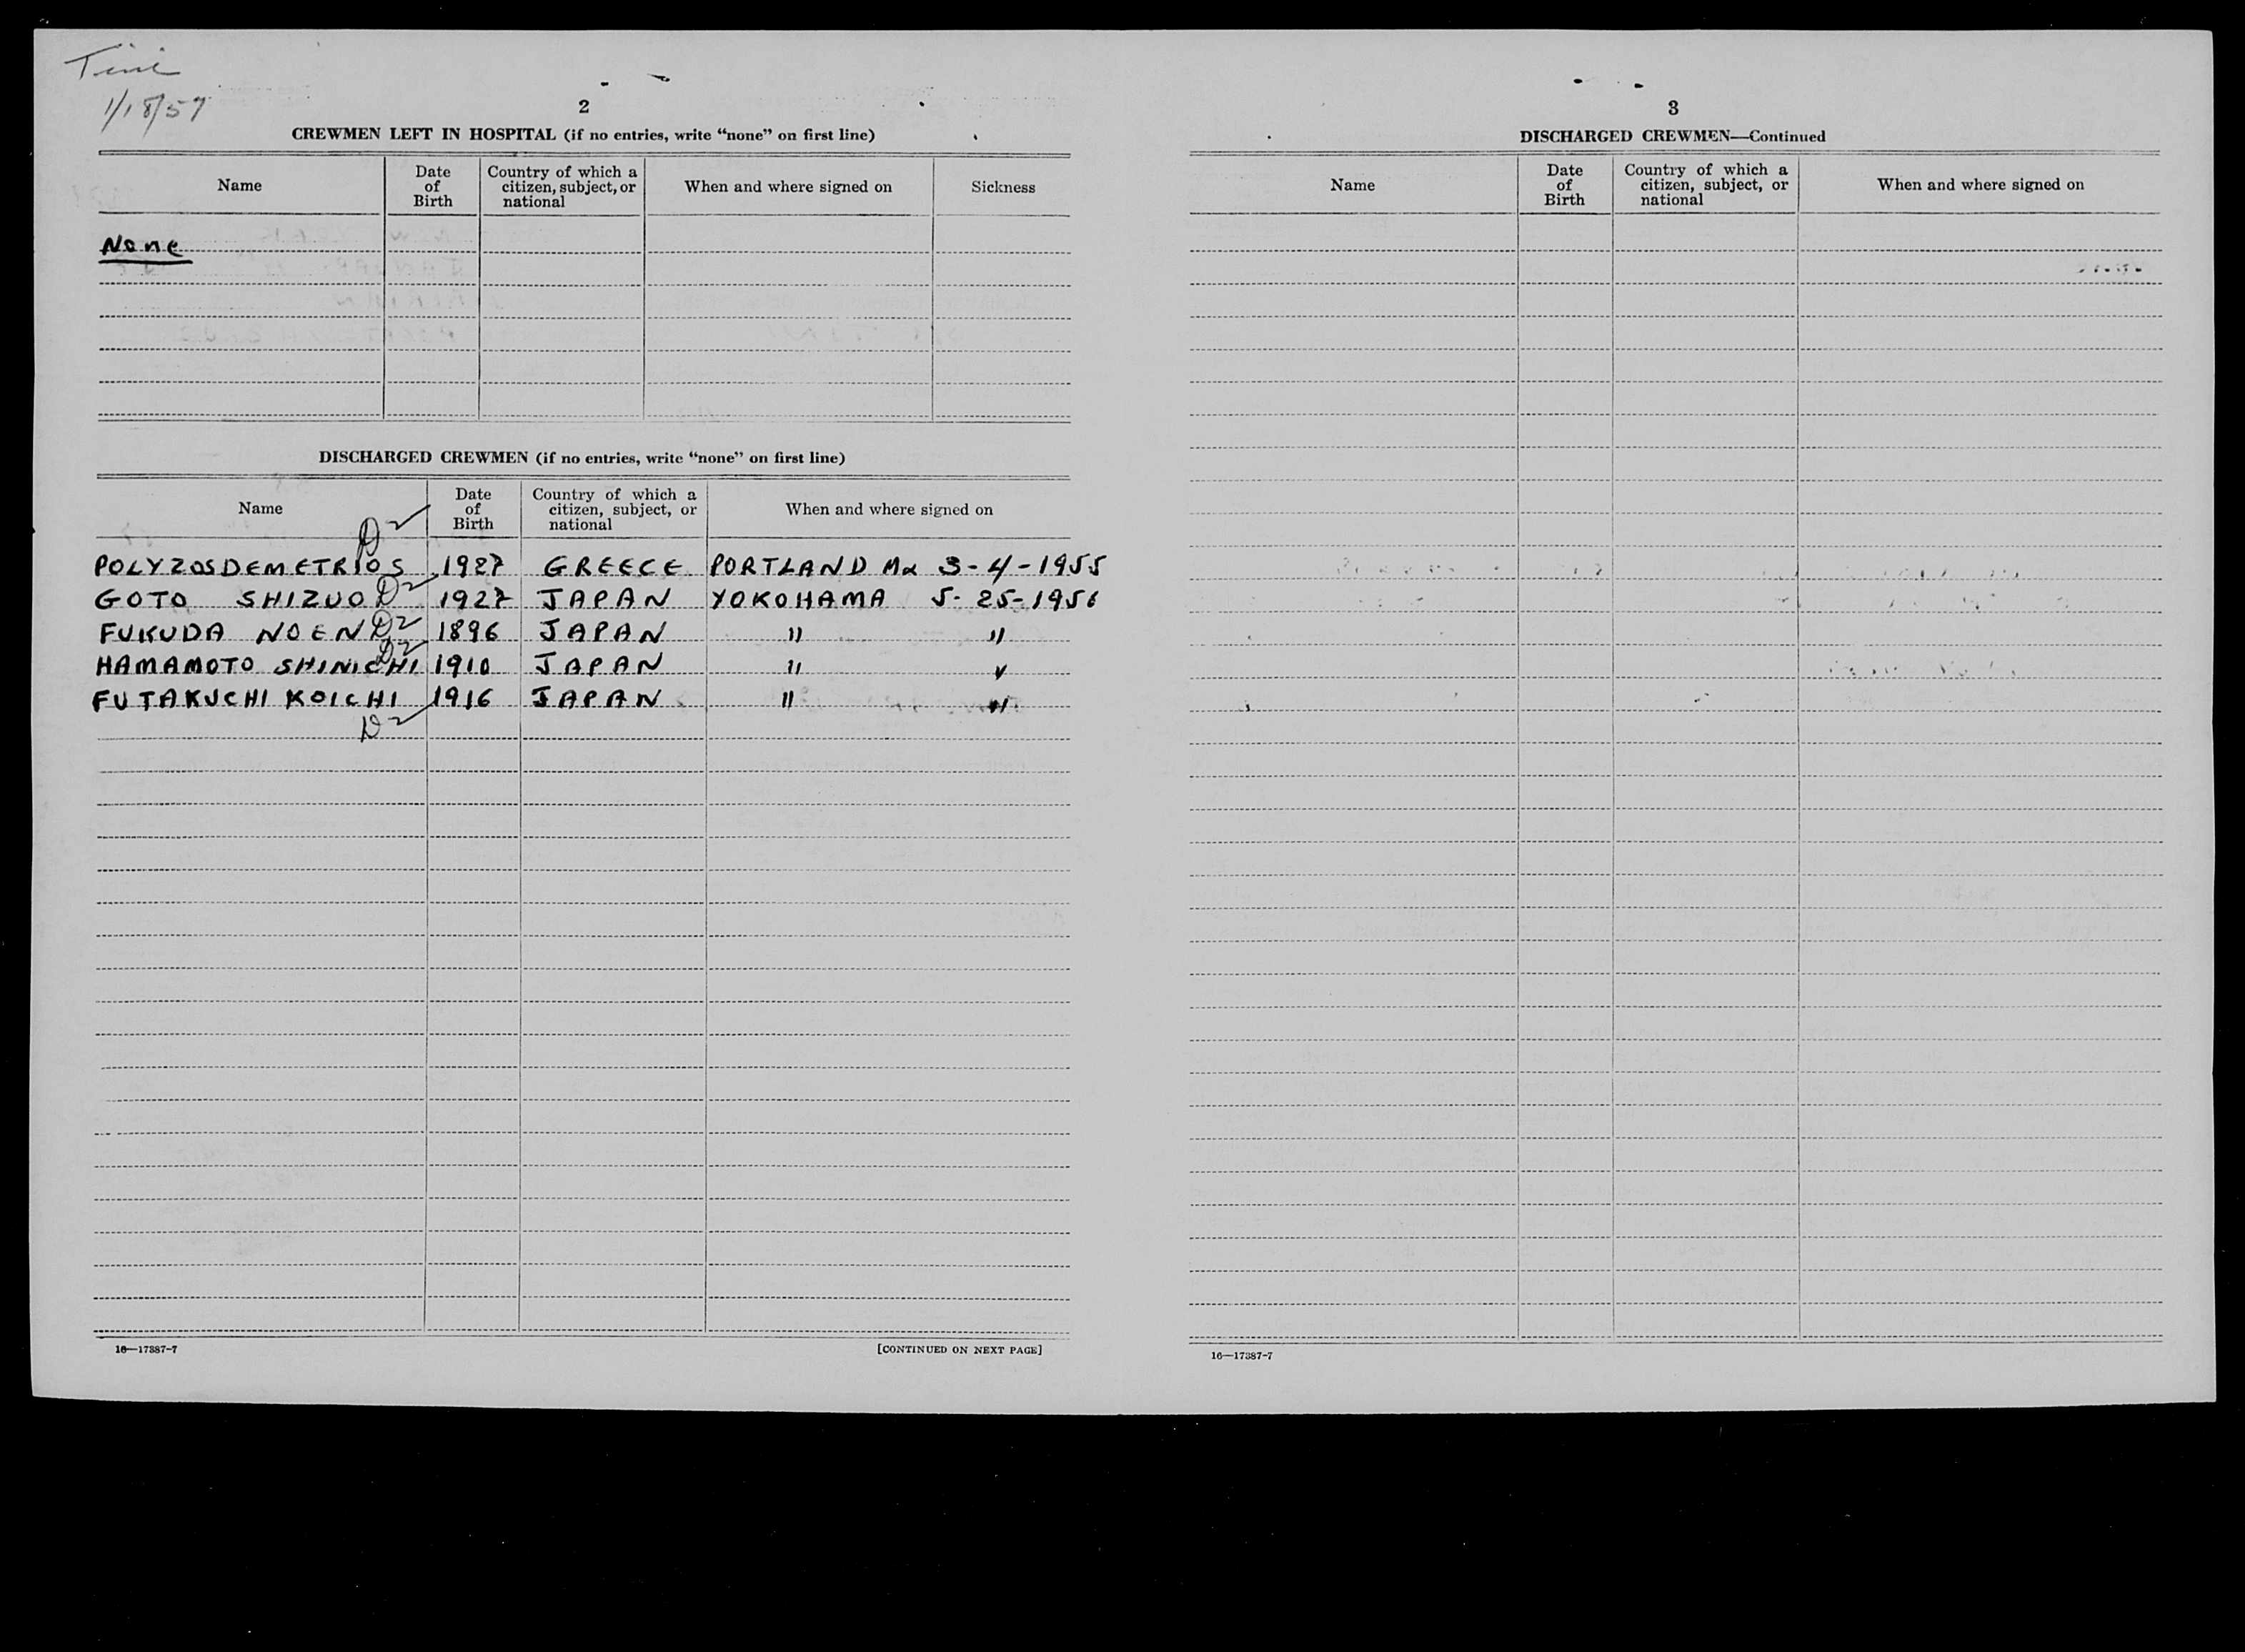 Tini
1/18/57
2
CREWMEN LEFT IN HOSPITAL (if no entries, write “none” on first line)
Name
Date of Birth
Country of which a citizen, subject, or national
When and where signed on
Sickness
None
DISCHARGED CREWMEN (if no entries, write “none” on first line)
Name
Date of Birth
Country of which a citizen, subject, or national
When and where signed on
POLYZOS DEMETRIOS D2 1927 GREECE PORTLAND Me 3-4-1955
GOTO SHIZUO D2 1927 JAPAN YOKOHAMA 5-25-1956
FUKUDA NOEN D2 1896 JAPAN " "
HAMAMOTO SHINICHI D2 1910 JAPAN " "
FUTAKUCHI KOICHI 1916 JAPAN " "
D2
16—17387-7
[CONTINUED ON NEXT PAGE]
3
DISCHARGED CREWMEN—Continued
Name
Date of Birth
Country of which a citizen, subject, or national
When and where signed on
16—17387-7